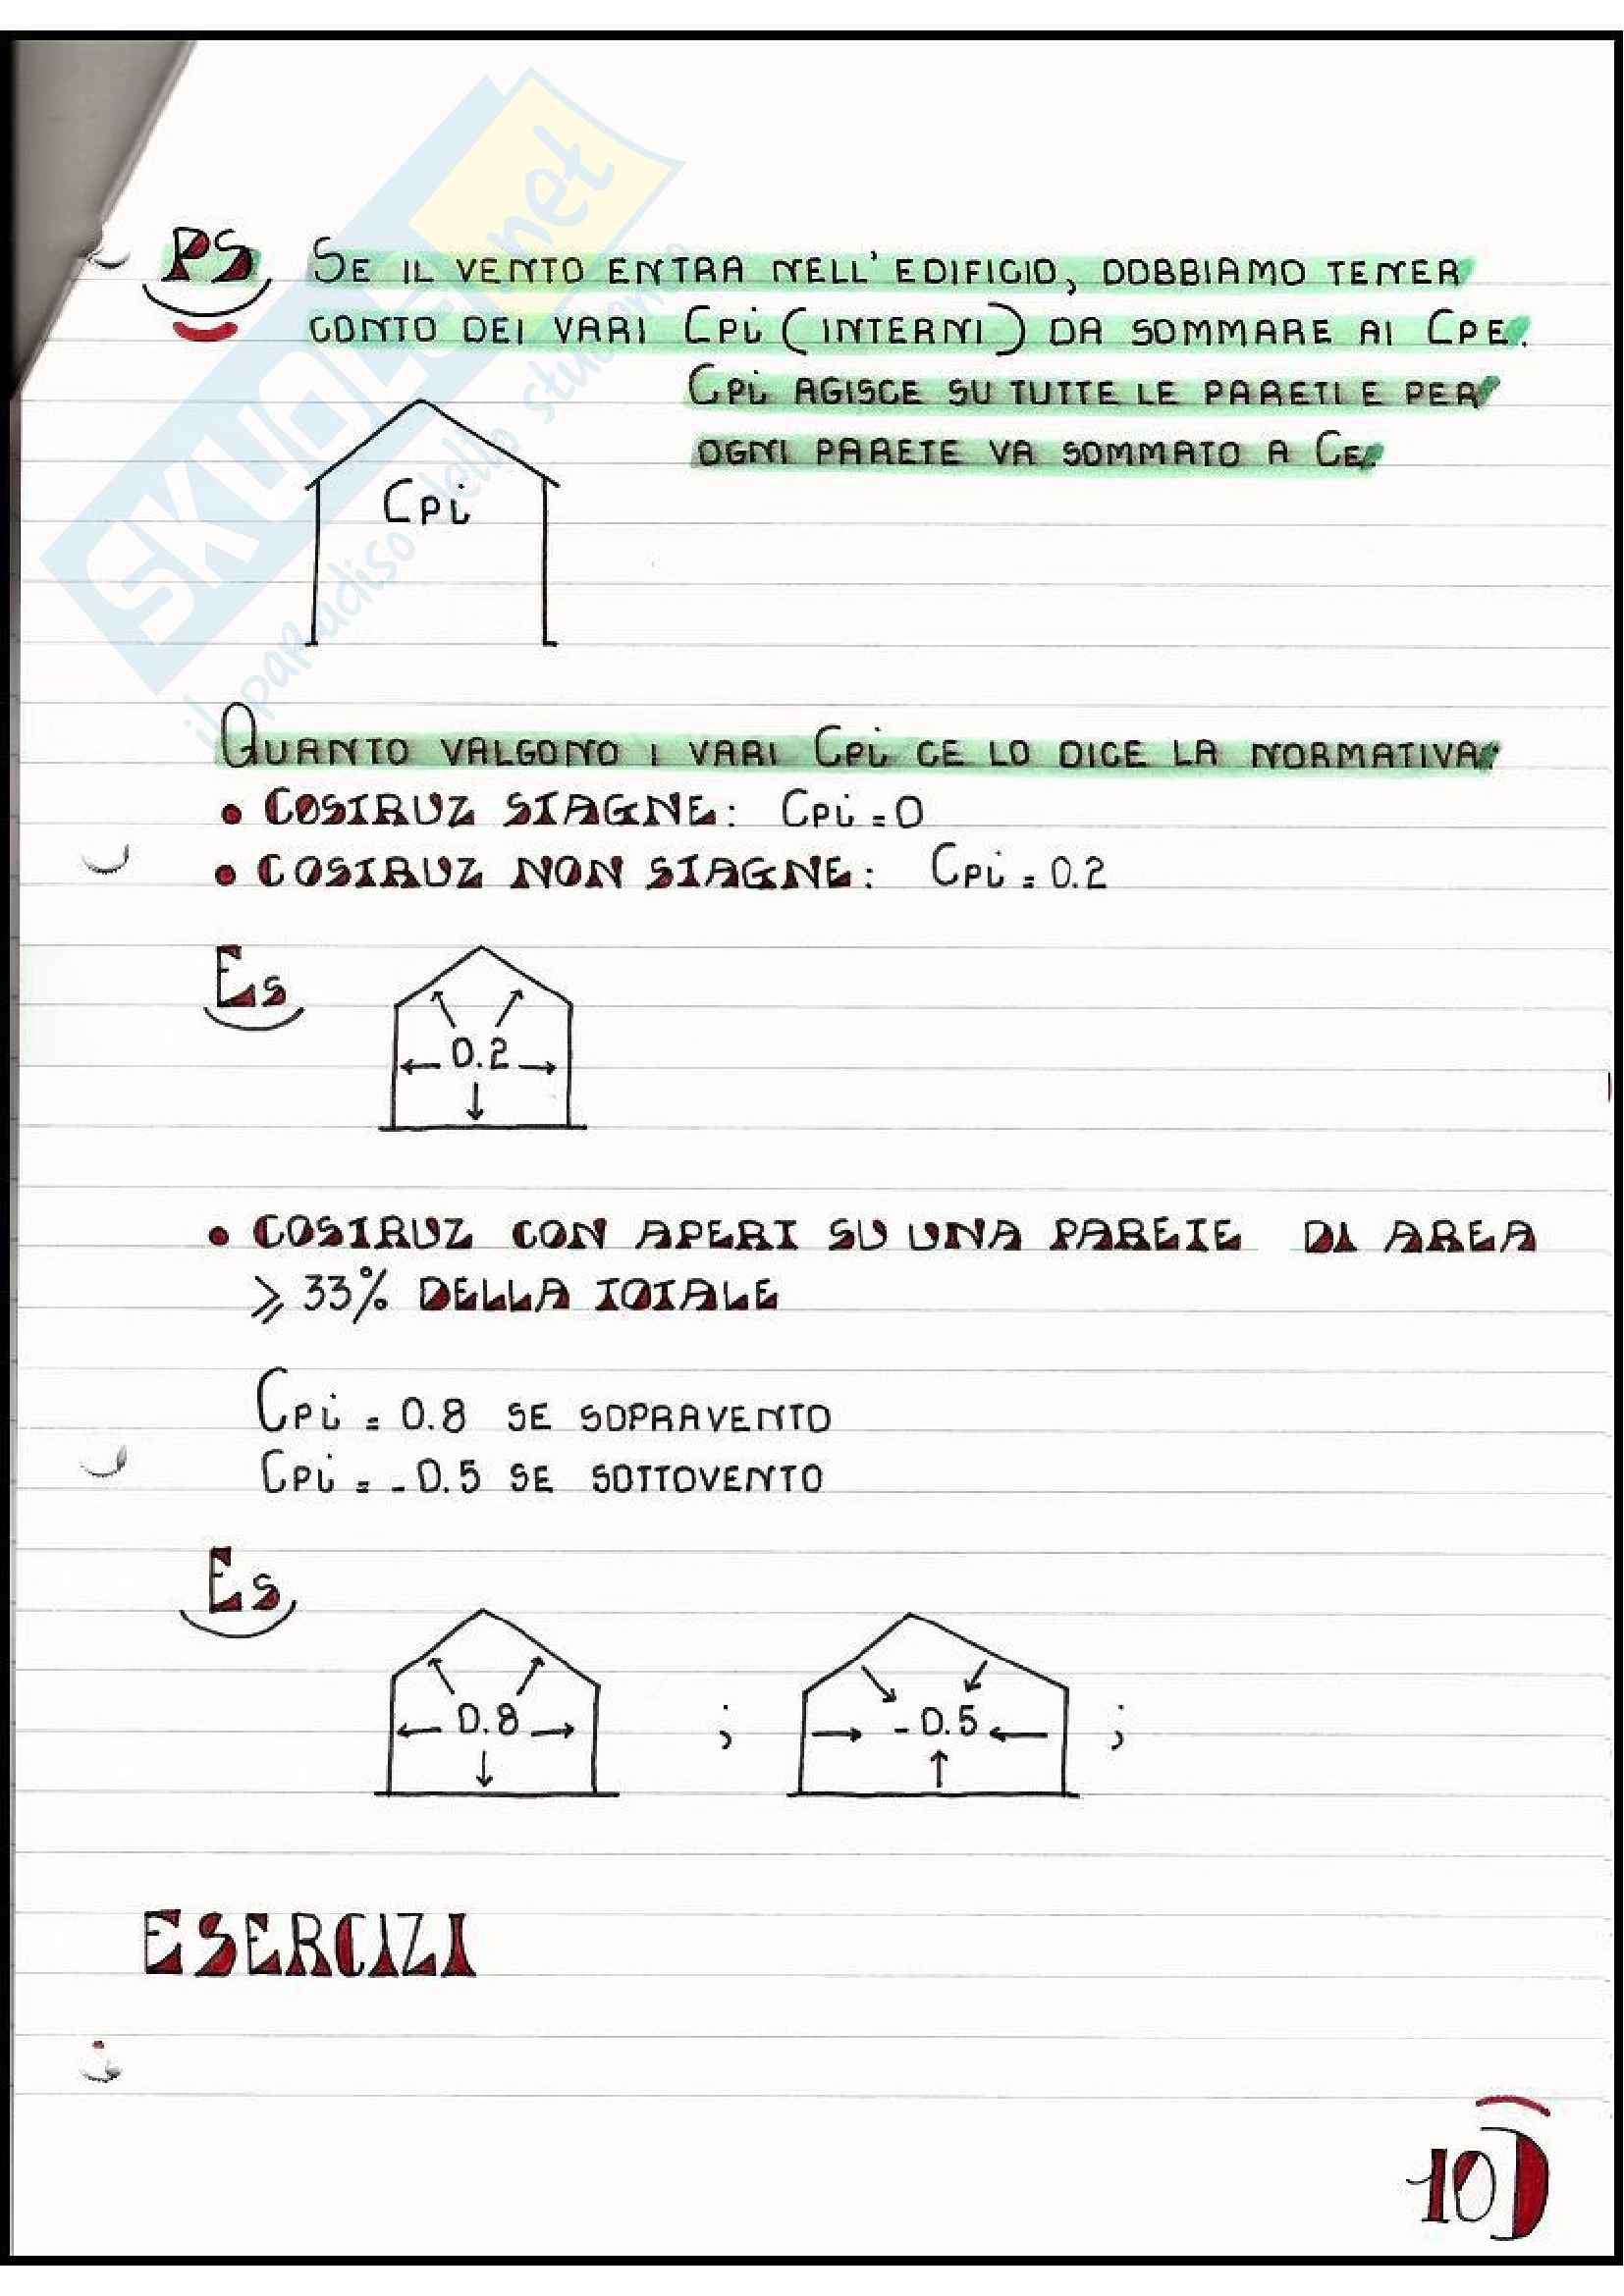 SKUOLA.net
il paradiso dello studente
PS SE IL VENTO ENTRA NELL'EDIFICIO, DOBBIAMO TENER
CONTO DEI VARI Cpi (INTERNI) DA SOMMARE AI CPE.
Cpi AGISCE SU TUTTE LE PARETI E PER
OGNI PARETE VA SOMMATO A CE.
Cpi
QUANTO VALGONO I VARI Cpi CE LO DICE LA NORMATIVA:
• COSTRUZ STAGNE: Cpi = 0
• COSTRUZ NON STAGNE: Cpi = 0.2
Es
0.2
• COSTRUZ CON APERT SU UNA PARETE DI AREA
⩾ 33% DELLA TOTALE
Cpi = 0.8 SE SOPRAVENTO
Cpi = -0.5 SE SOTTOVENTO
Es
0.8 ; -0.5 ;
ESERCIZI
10D